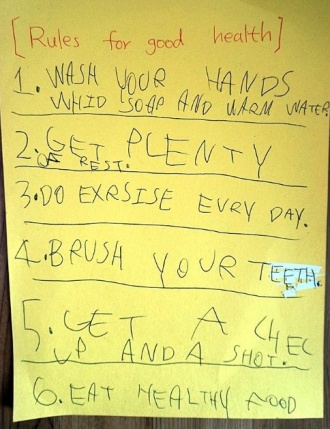 [Rules for good health]
1. WASH YOUR HANDS
WHID SOAP AND WARM WATER
2. GET PLENTY
OF REST.
3. DO EXRSISE EVRY DAY.
4. BRUSH YOUR TEETH.
5. GET A CHEC
UP AND A SHOT.
6. EAT HEALTHY FOOD